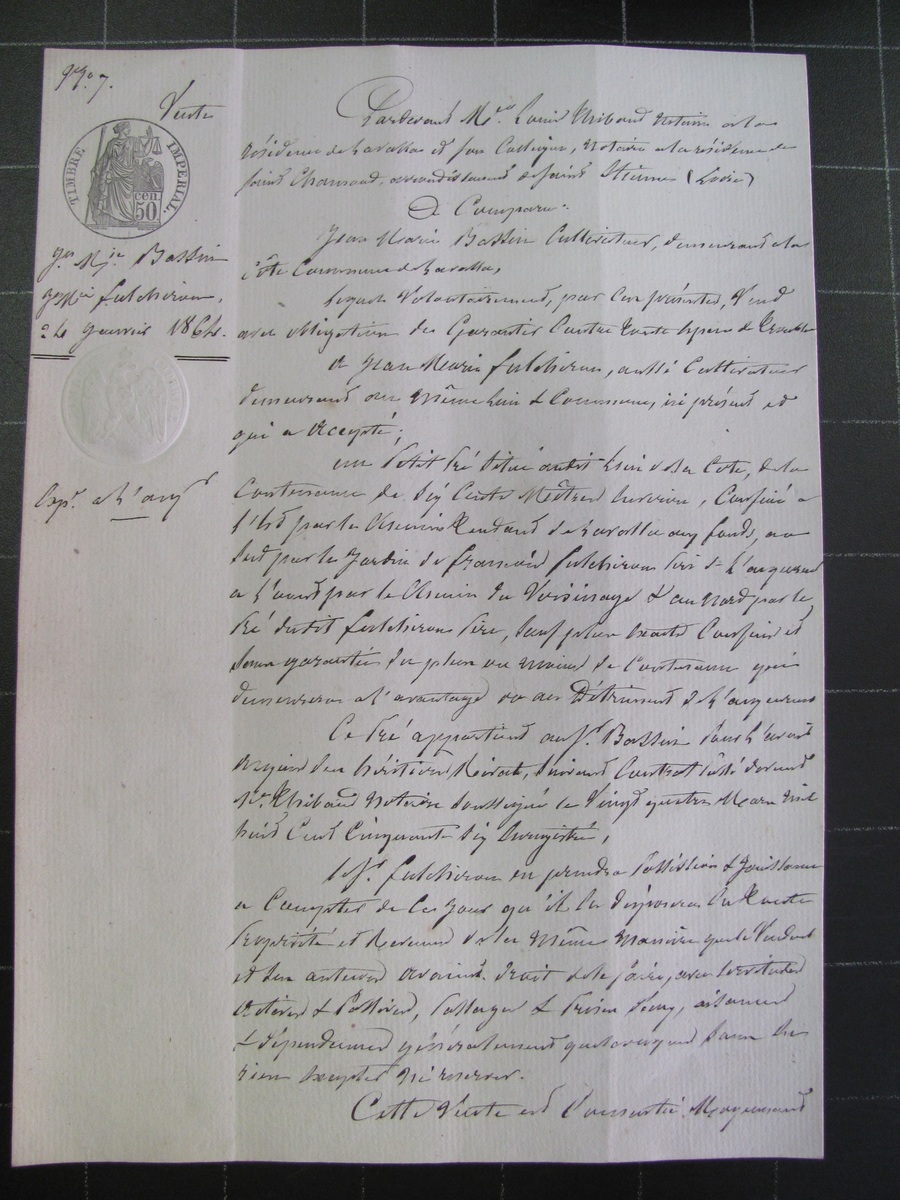 Vente
TIMBRE IMPERIAL.
50 cen.
Jn Mie Bassin
Jn Mie fulchiron
24 Janvier 1864.
Expn. a l'acqr
Pardevant Mes. Louis Thibaud Notaire a la
résidence de Lavalla et son Collègue, Notaire a la résidence de
Saint Chamond, arrondissement de Saint Etienne (Loire)
A Comparu:
Jean Marie Bassin Cultivateur, demeurant a la
Côte Commune de Lavalla,
Lequel Volontairement, par Ces présentes, Vend
avec obligation de Garantir Contre toute espèce de trouble
a Jean Marie fulchiron, aussi Cultivateur
demeurant au Même Lieu & Commune, ici présent et
qui a accepté;
un Petit Pré Situé audit Lieu de la Cote, de la
Contenance de Dix Cents Mètres Environ, Confiné a
l'Est par le Chemin Tendant de Lavalla aux fonds, au
Sud par le Jardin de françois fulchiron Père de l'acquereur
a l'ouest par le Chemin du Voisinage & au Nord par le
Pré dudit fulchiron Père, Sauf plus exacts Confins et
Sans garantie du plus ou moins de Contenance qui
demeurera a l'avantage ou au Détriment de l'acquereur
Ce Pré appartient au Sr. Bassin Pour l'avoir
acquis des héritiers Rivat, Suivant Contrat Passé devant
Me. Thibaud Notaire Soussigné le Vingt quatre Mars mil
huit Cent Cinquante Six Enregistré,
Le Sr. fulchiron en prendra Possession & Jouissance
a Compter de Ce Jour qu'il en disposera En toute
Propriété et Revenu de la Même Manière que le Vendeur
et Ses auteurs avaient droit de le faire, avec Servitudes
Actives & Passives, Passages & Prises d'eau, aisances
& dépendances généralement quelconques Sans En
rien excepter Ni réserver.
Cette Vente est Consentie Moyennant